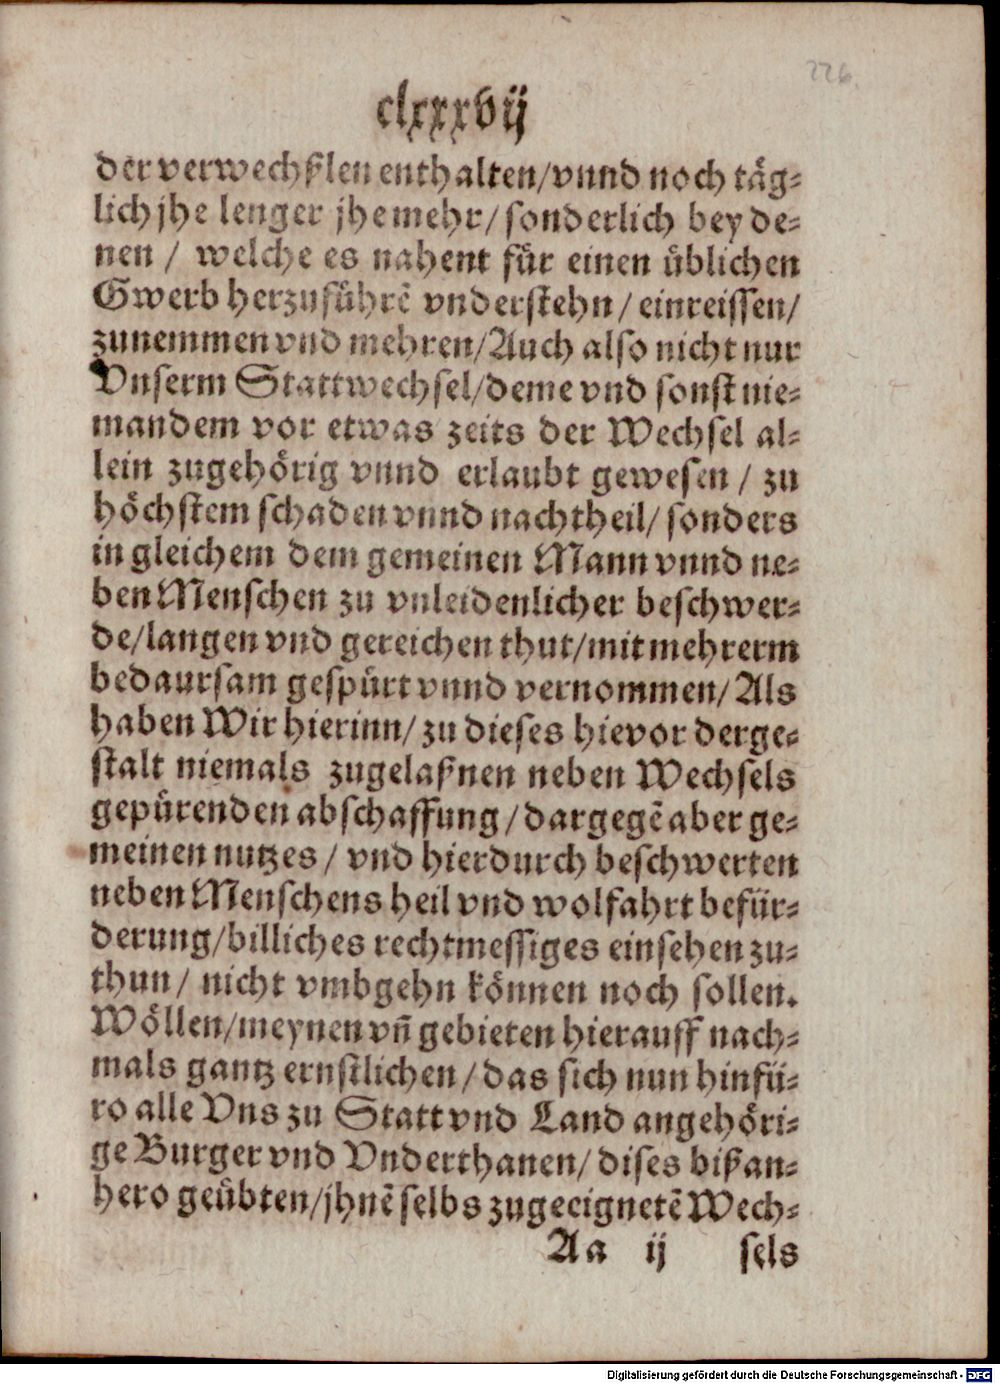 226.
clxxxvij
der verwechßlen enthalten/vnnd noch täg⸗
lich jhe lenger jhe mehr/ sonderlich bey de⸗
nen / welche es nahent für einen üblichen
Gwerb herzuführẽ vnderstehn / einreissen/
zunemmen vnd mehren/Auch also nicht nur
Vnserm Stattwechsel/deme vnd sonst nie⸗
mandem vor etwas zeits der Wechsel al⸗
lein zugehörig vnnd erlaubt gewesen / zu
höchstem schaden vnnd nachtheil/ sonders
in gleichem dem gemeinen Mann vnnd ne⸗
ben Menschen zu vnleidenlicher beschwer⸗
de/langen vnd gereichen thut/mit mehrerm
bedaursam gespürt vnnd vernommen/Als
haben Wir hierinn/ zu dieses hievor derge⸗
stalt niemals zugelaßnen neben Wechsels
gepürenden abschaffung/dargegẽ aber ge⸗
meinen nutzes / vnd hierdurch beschwerten
neben Menschens heil vnd wolfahrt befür⸗
derung/billiches rechtmessiges einsehen zu⸗
thun/ nicht vmbgehn können noch sollen.
Wöllen/meynen vñ gebieten hierauff nach⸗
mals gantz ernstlichen / das sich nun hinfü⸗
ro alle Vns zu Statt vnd Land angehöri⸗
ge Burger vnd Vnderthanen/ dises bißan⸗
hero geübten/jhnẽ selbs zugeeignetẽ Wech⸗
Aa ij sels
Digitalisierung gefördert durch die Deutsche Forschungsgemeinschaft - DFG